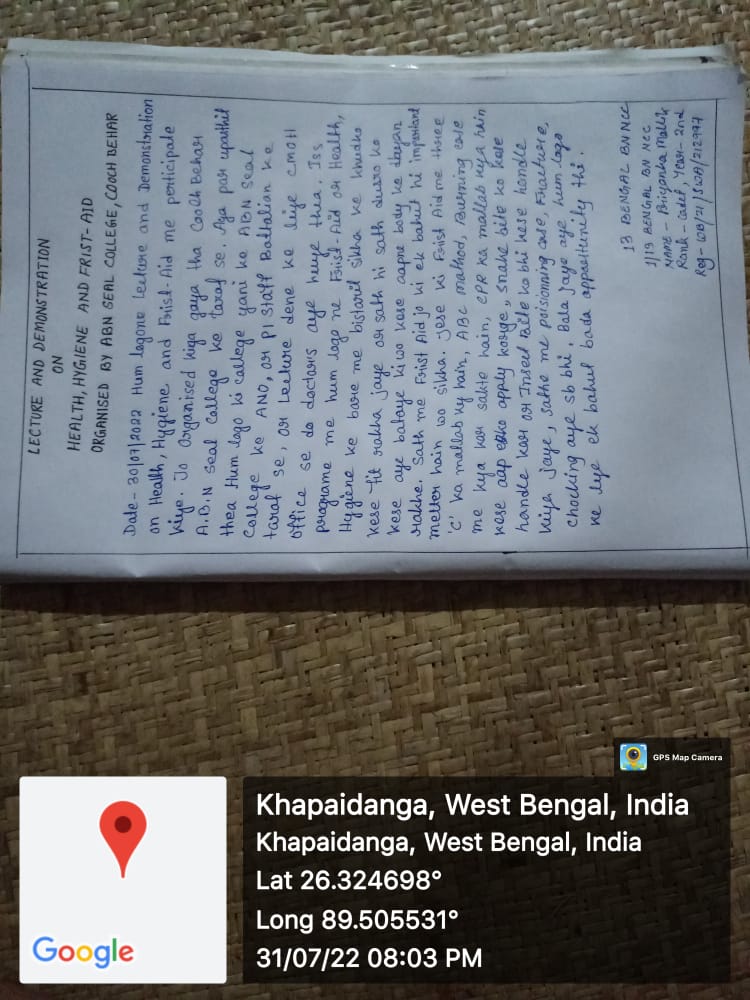 LECTURE AND DEMONSTRATION
ON
HEALTH, HYGIENE AND FRIST-AID
ORGANISED BY ABN SEAL COLLEGE, COOCH BEHAR
Date - 30/07/2022 Hum logone Lecture and Demonstration
on Health, Hygiene and Frist-Aid me perticipate
kiye. Jo Organised kiya gaya tha Cooch Behar
A.B.N Seal College ke taraf se. Aya par upasthit
thea Hum logo ki college yani ke ABN Seal
College ke ANO, or PI Staff Battalian ke
taraf se, or Lecture dene ke liye CMOH
office se do doctors aye huye thea. Iss
programe me hum logo ne Frist-Aid or Health,
Hygiene ke bare me bistarit sikha ke khudko
kese fit rakha jaye or sath hi sath dusro ko
kese aye bataye ki wo kese aapne body ke dhayan
rakhe. Sath me Frist Aid jo ki ek bahut hi important
metter hain wo sikha. Jese ki Frist Aid me three
'C' ka mallab ky hain, ABC mathod, Burning case
me kya kar sakte hain, CPR ka mallab kya hain
kese aap apply karge, snake bite ko kese
handle kar or Insect Bite ko bhi kese handle
kiya jaye, sathe me poisionning case, Fracture,
chocking aye sb bhi, Bala jaye aye hum logo
ke lye ek bahut bada apparttunity thi
13 BENGAL BN NCC
1/13 BENGAL BN NCC
NAME - Priyanka Mallik
Rank - cadet, Year - 2nd
Reg - WB/21/SWA/212997
GPS Map Camera
Google
Khapaidanga, West Bengal, India
Khapaidanga, West Bengal, India
Lat 26.324698°
Long 89.505531°
31/07/22 08:03 PM